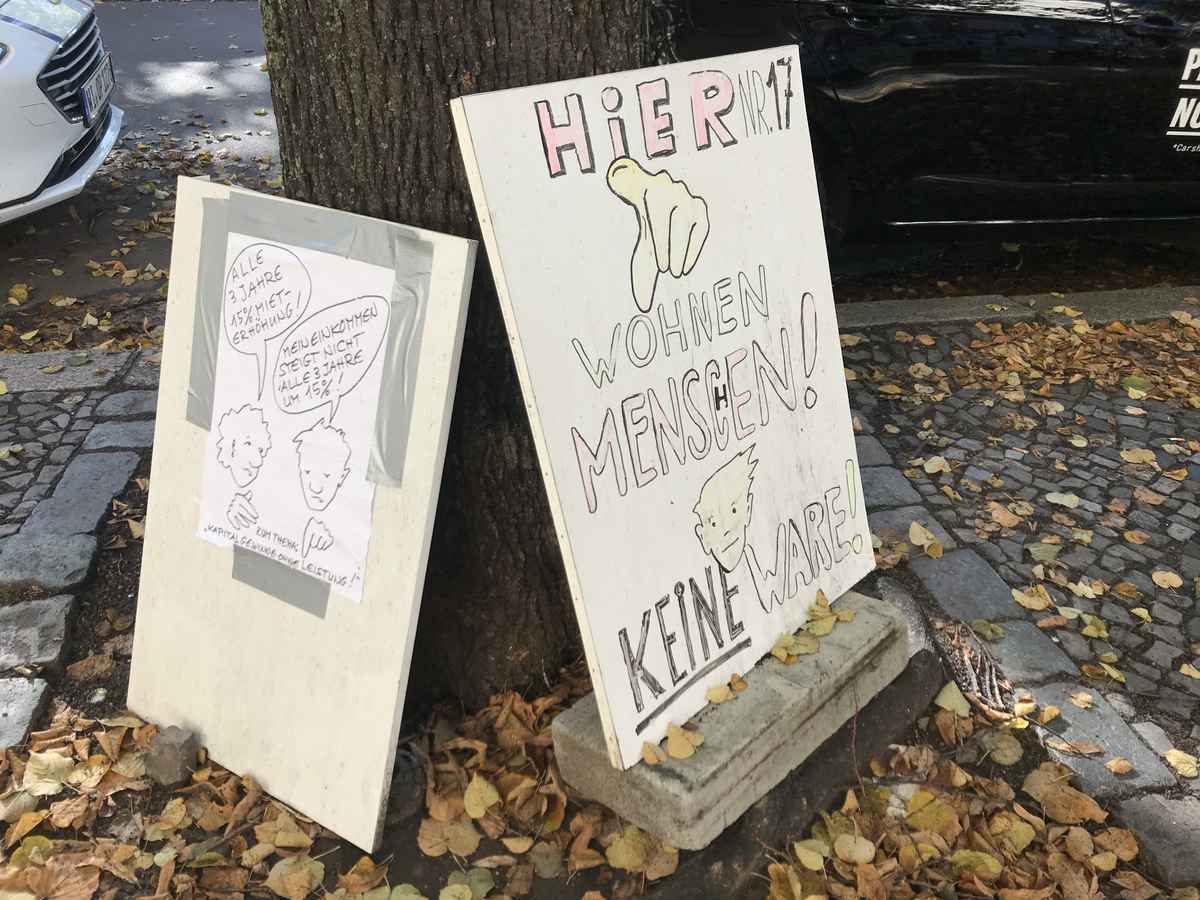 ALLE
3 JAHRE
15% MIET-
ERHÖHUNG!
MEIN EINKOMMEN
STEIGT NICHT
ALLE 3 JAHRE
UM 15%!
ZUM THEMA:
„KAPITALGEWINNE OHNE LEISTUNG!“
HiER NR. 17
WOHNEN
MENSCHEN!
KEiNE WARE!